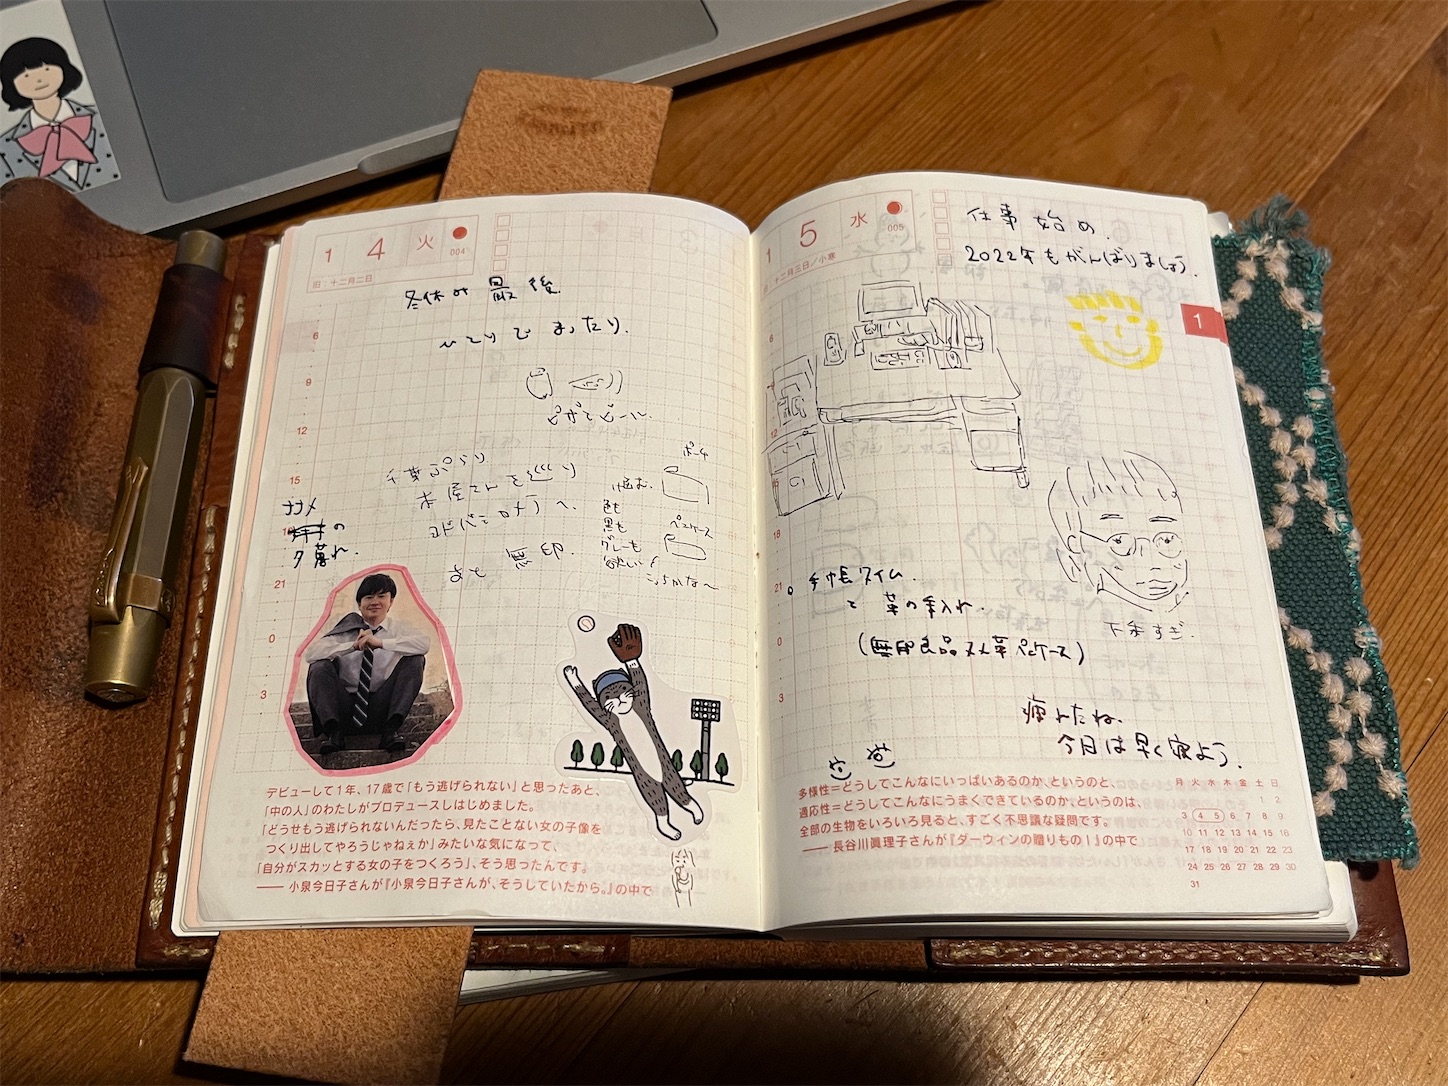 1 4 火
004
旧:十二月二日
冬休み最後
ひとりでまったり.
ピザとビール.
6
9
12
15
21
0
3
千葉ぶらり
本屋さんを巡り
ヨドバシカメラへ.
あと 無印.
ポーチ
悩む.
色も
黒も
グレーも
欲しい!
ペンケース
こっちかな〜
ナナメ
の
夕暮れ.
デビューして1年、17歳で「もう逃げられない」と思ったあと、
「中の人」のわたしがプロデュースしはじめました。
「どうせもう逃げられないんだったら、見たことない女の子像を
つくり出してやろうじゃねぇか」みたいな気になって、
「自分がスカッとする女の子をつくろう」、そう思ったんです。
── 小泉今日子さんが『小泉今日子さんが、そうしていたから。』の中で
1 5 水
005
旧:十二月三日/小寒
仕事始め.
2022年もがんばりましょう.
1
6
12
15
18
21
0
3
下手すぎ.
手帳タイム.
と 革の手入れ.
(無印良品ヌメ革ペンケース)
疲れたね.
今日は早く寝よう.
多様性=どうしてこんなにいっぱいあるのか、というのと、
適応性=どうしてこんなにうまくできているのか、というのは、
全部の生物をいろいろ見ると、すごく不思議な疑問です。
── 長谷川眞理子さんが『ダーウィンの贈りものⅠ』の中で
月 火 水 木 金 土 日
1 2
3 4 5 6 7 8 9
10 11 12 13 14 15 16
17 18 19 20 21 22 23
24 25 26 27 28 29 30
31